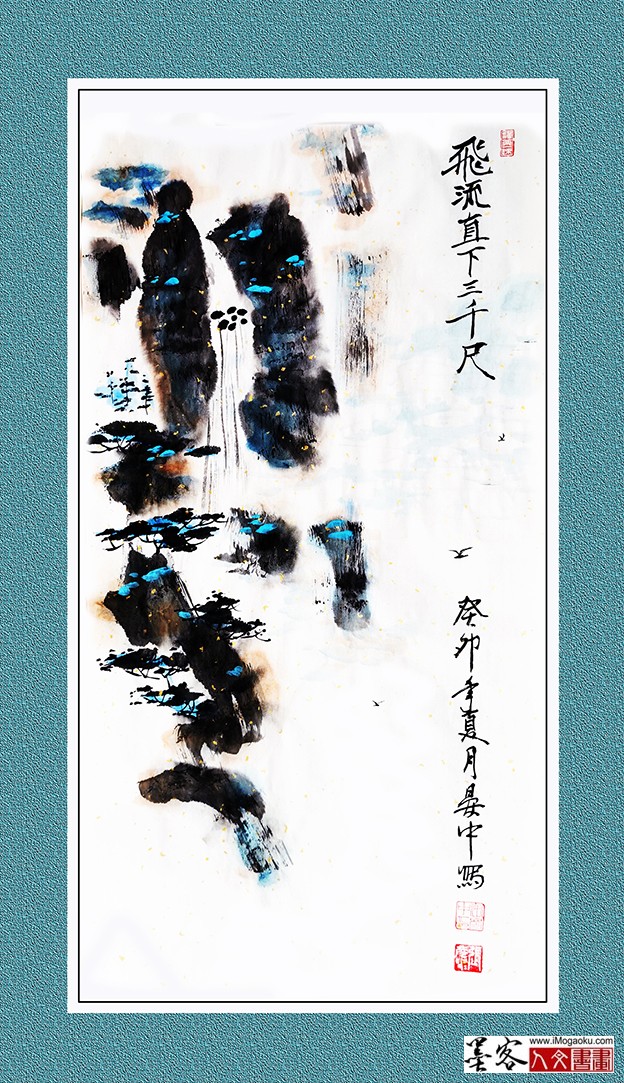 飛流直下三千尺
癸卯年夏月晏中寫
墨客
www.iMogaoku.com
人文書畫